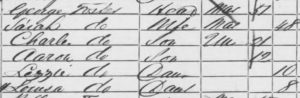 George Head Mar 51
Sarah do Wife Mar 48
Charles do Son Un 21
Aaron do Son 12
Lizzie do Daur 10
Louisa do Daur 8